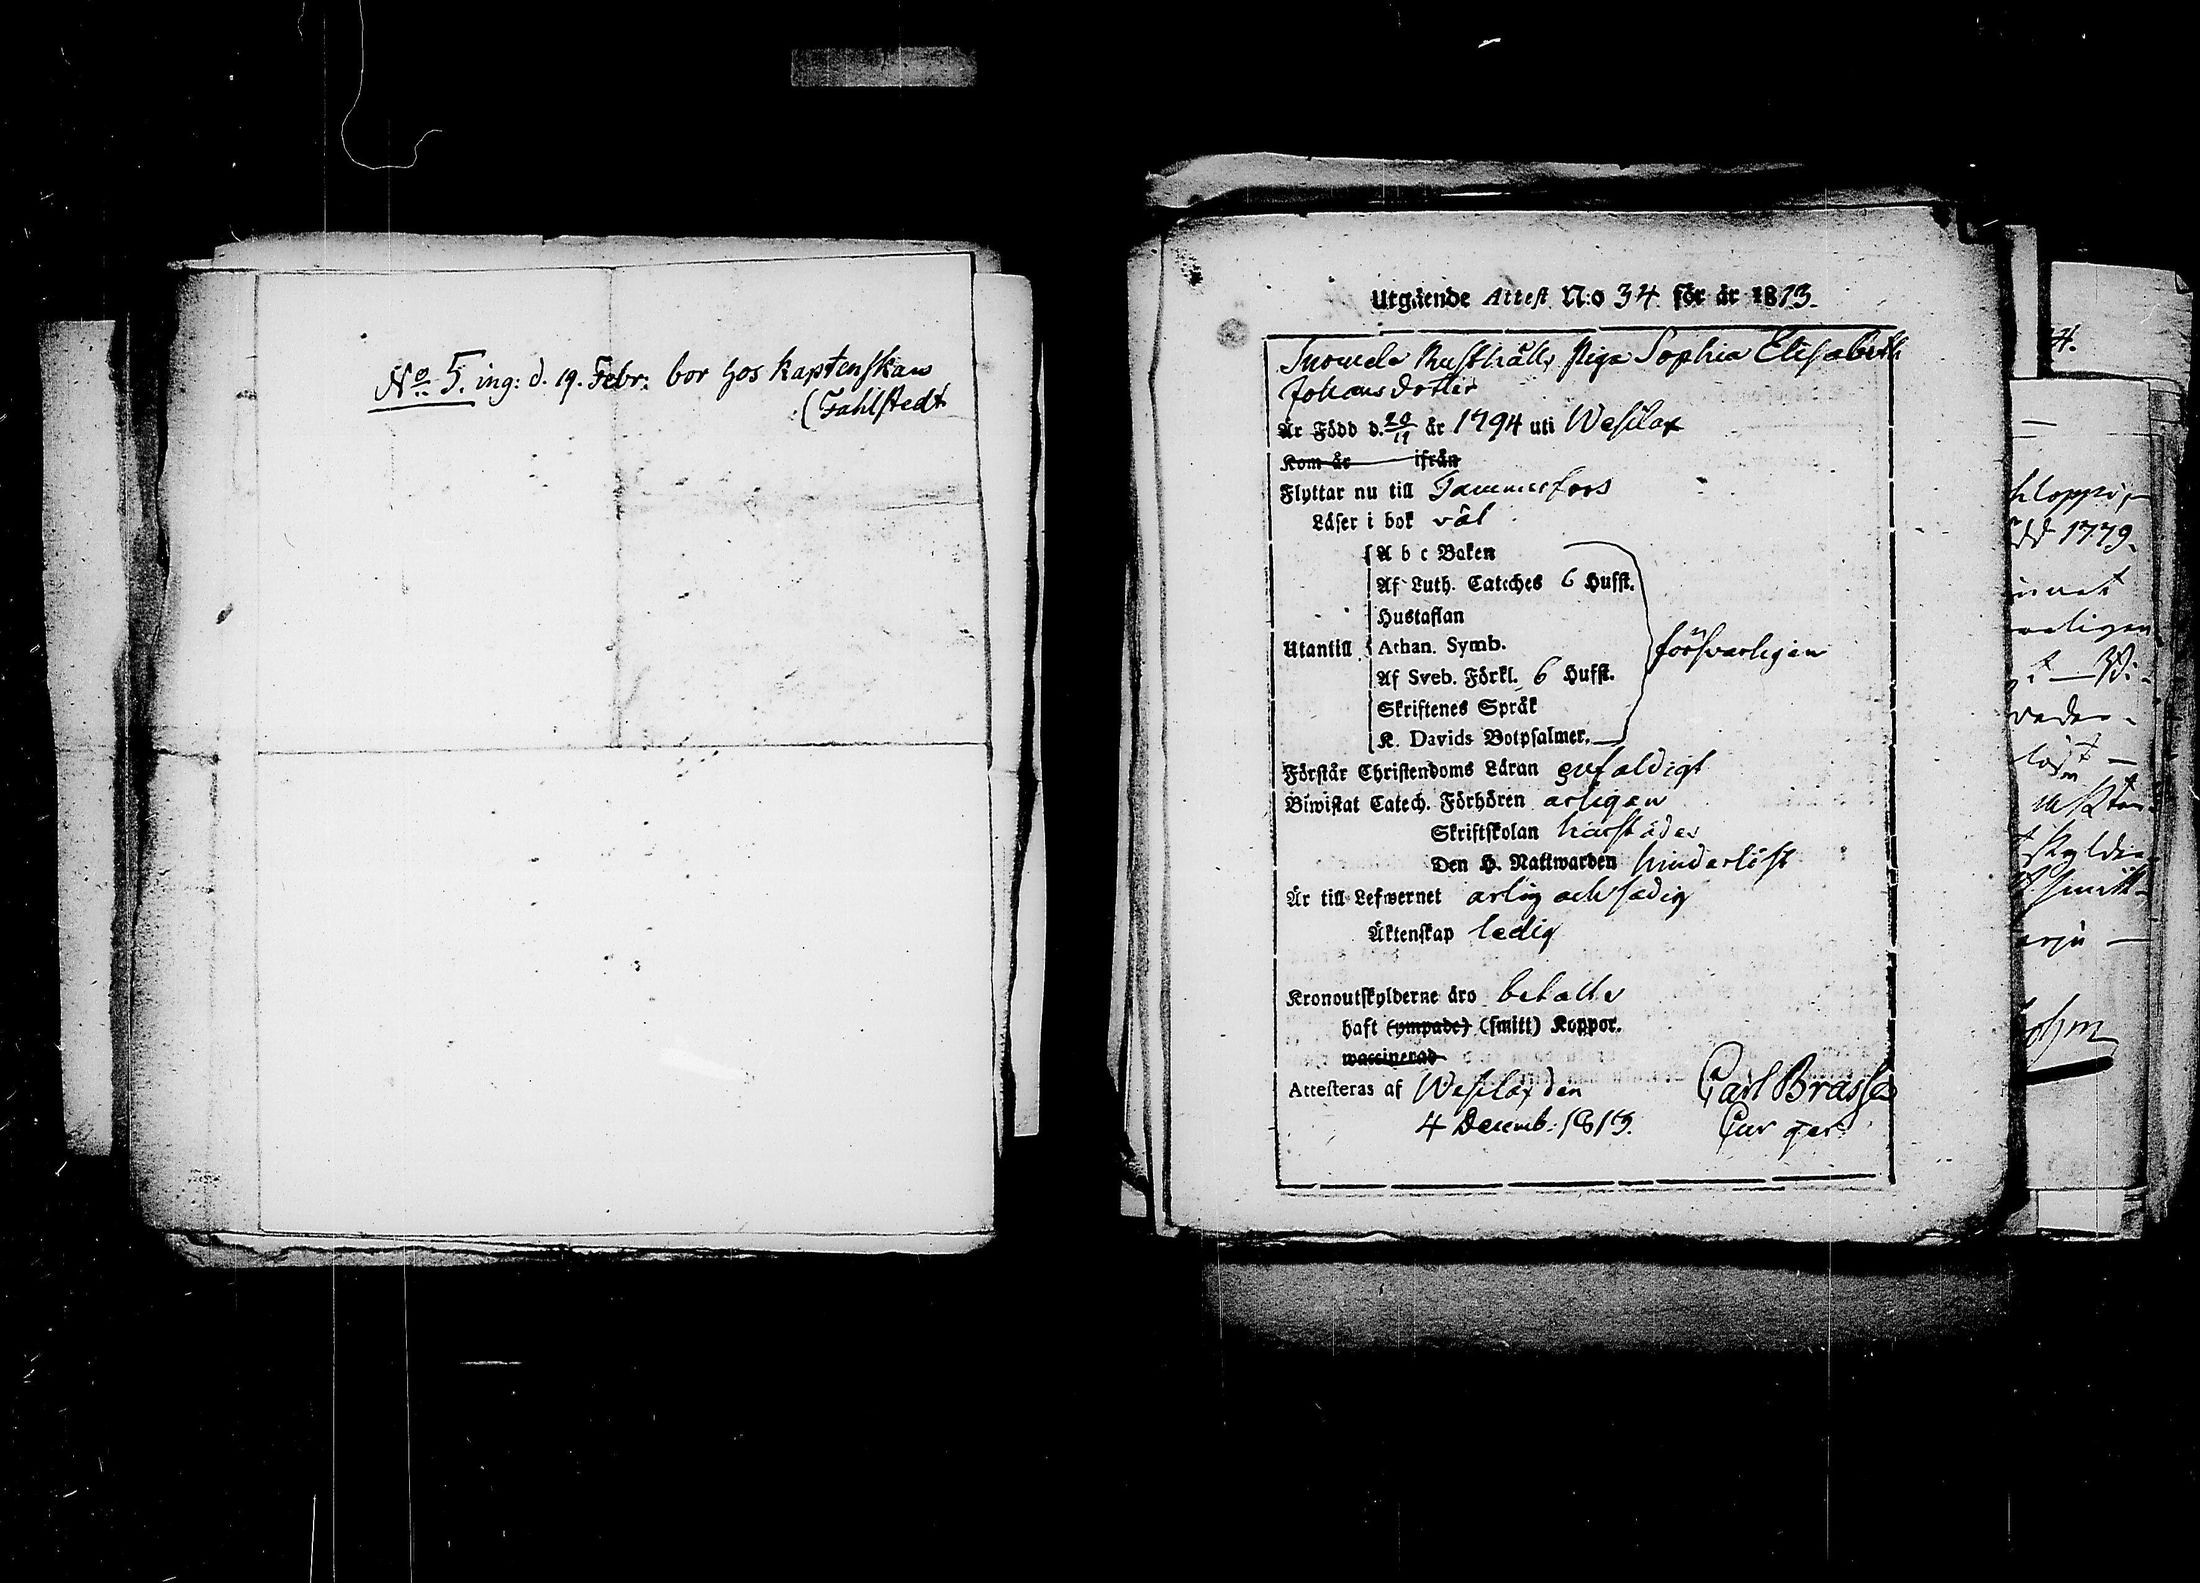 No 5. ing: d. 19. Febr: bor hos Kaptenskan
(Fahlstedt
Utgående Attest N:o 34 för år 1813.
Rusthålls Piga Sophia Elisabeth
Johansdotter
Är Född d. 20/11 år 1794 uti Wesilax
Kom år ifrån
Flyttar nu till Tammerfors
Läser i bok väl
A b c Boken
Af Luth. Cateches 6 Hufst.
Hustaflan
Utantill Athan. Symb. försvarligen
Af Sveb. Förkl. 6 Hufst.
Skriftenes Språk
K. Davids Botpsalmer.
Förstår Christendoms Läran enfaldigt
Biwistat Catech. Förhören årligen
Skriftskolan härstädes
Den H. Nattwarden hinderlöst
Är till Lefwernet ärlig och sedig
Äktenskap ledig
Kronoutskylderne äro betalte
haft (ympade) (smitt) Koppor.
waccinerad
Attesteras af Wesilax den Carl Brasse
4 Decemb. 1813.
4.
kloppi,
dd 1779.